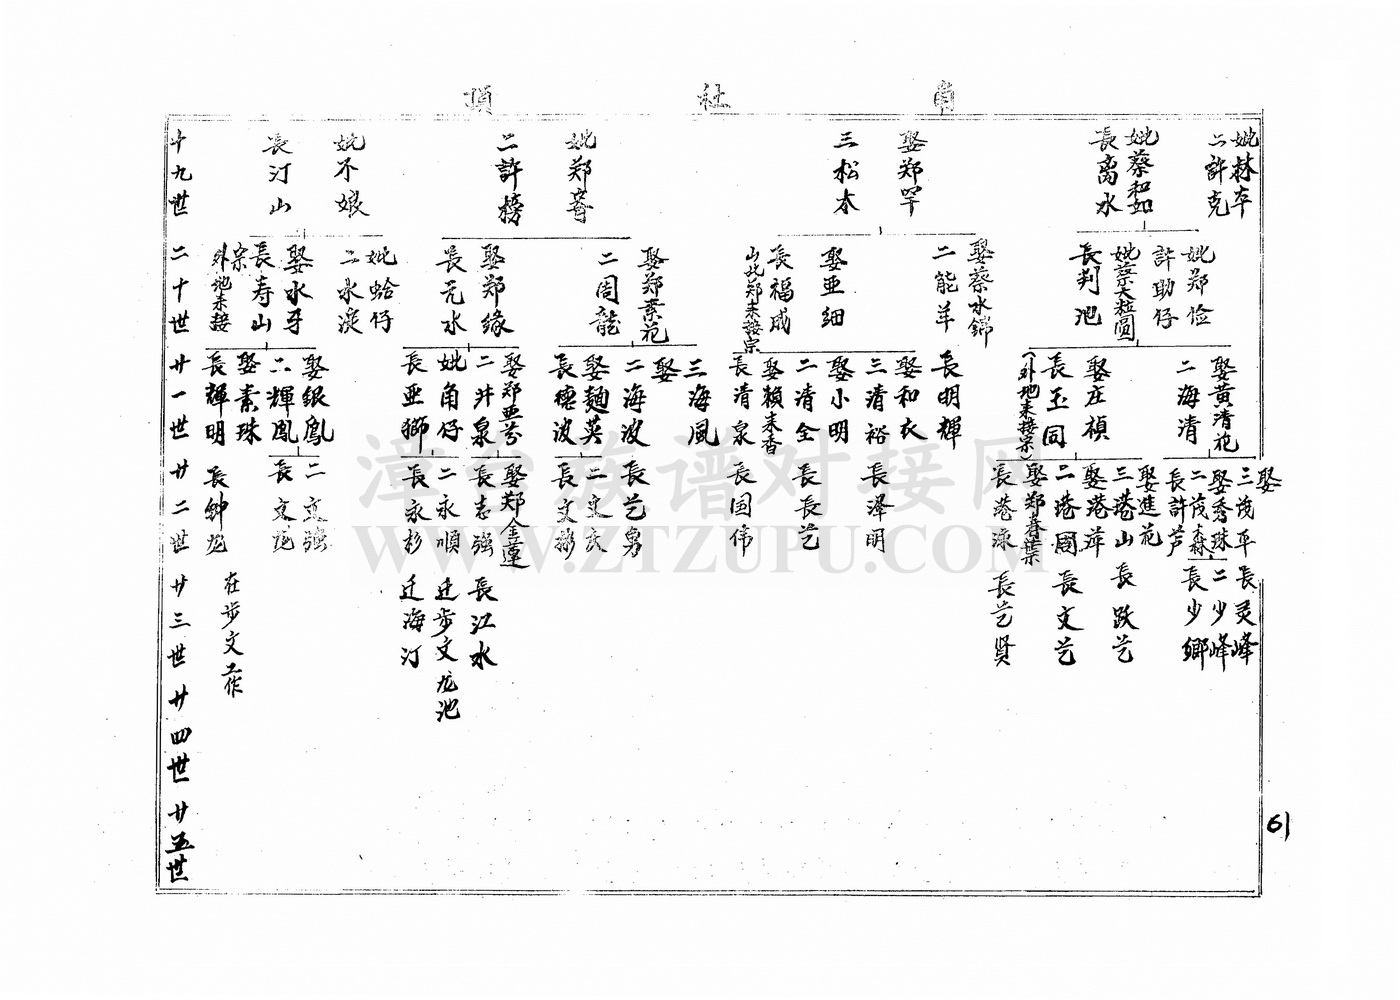 社
頂
妣林卒
二許克
妣蔡和如
長离水
娶郑罕
三松本
妣郑寄
二許榜
妣不娘
長汀山
十九世
妣郑俭
許助仔
妣蔡大粒圆
長判池
娶蔡水錦
二能羊
娶亚细
長福成
山北郑来接宗
娶郑素花
二周龍
娶郑缘
長元水
妣蛤仔
二水溪
娶水牙
長寿山
外地来接宗
二十世
娶黃清花
二海清
娶庄楨
長玉同
（外地来接宗）
長明輝
娶和衣
三清裕
娶小明
二清全
娶賴来香
長清泉
三海風
娶
二海波
娶麵英
長德波
娶郑亚芬
二井泉
妣角仔
長亚獅
娶銀鳳
二輝鳳
娶素珠
長輝明
廿一世
娶
三茂平
娶秀珠
二茂森
長許芦
娶進花
三港山
娶港萍
二港國
娶郑春葉
長港泳
長泽明
長長艺
長国伟
長艺勇
二文庆
長文彬
娶郑金蓮
長志强
二永順
長永杉
二文强
長文龙
長紳龙
廿二世
長灵峰
二少峰
長少卿
長跃艺
長文艺
長艺贤
長江水
迁步文龙池
迁海汀
在步文工作
廿三世
廿四世
廿五世
61
漳台族谱对接网
WWW.ZTZUPU.COM